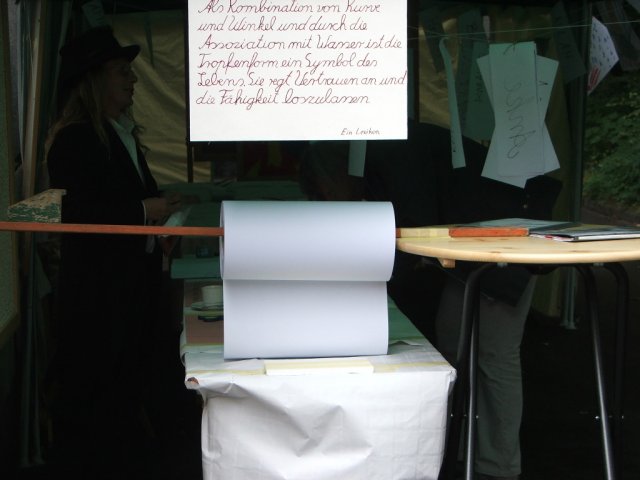 Als Kombination von Kurve
und Winkel und durch die
Assoziation mit Wasser ist die
Tropfenform ein Symbol des
Lebens. Sie regt Vertrauen an und
die Fähigkeit loszulassen
Ein Lexikon